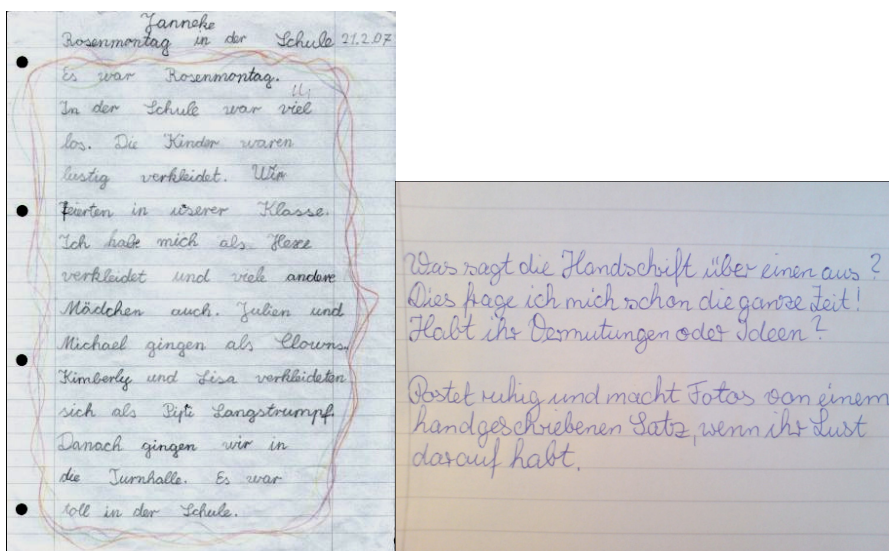 Janneke
Rosenmontag in der Schule 21.2.07
Es war Rosenmontag.
In der Schule war viel
los. Die Kinder waren
lustig verkleidet. Wir
feierten in userer Klasse.
Ich habe mich als Hexe
verkleidet und viele andere
Mädchen auch. Julien und
Michael gingen als Clowns.
Kimberly und Lisa verkleideten
sich als Pipi Langstrumpf.
Danach gingen wir in
die Turnhalle. Es war
toll in der Schule.
Was sagt die Handschrift über einen aus?
Dies frage ich mich schon die ganze Zeit!
Habt ihr Vermutungen oder Ideen?
Postet ruhig und macht Fotos von einem
handgeschriebenen Satz, wenn ihr Lust
darauf habt.